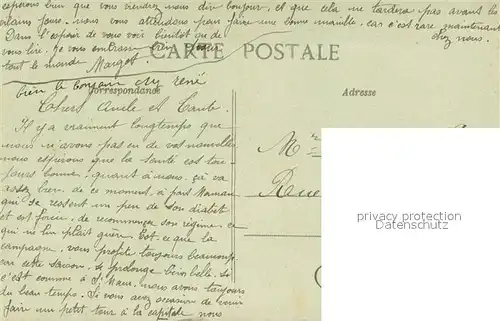 espérons bien que vous viendrez nous dire bonjour, et que cela ne tardera pas avant les
grands jours. nous vous attendons pour faire une bonne manille. car c'est rare maintenant
Dans l'espoir de vous voir bientôt ou de chez nous.
vous lire. Je vous embrasse bien fort
tout le monde Margot.
CARTE POSTALE
bien le bonjour chez René
Correspondance
Adresse
Chers Oncle et Tante.
Il y a vraiment longtemps que
nous n'avons pas eu de vos nouvelles
nous espérons que la santé est tou-
jours bonne. quant à nous, ça va
assez bien. de ce moment, à part Maman
qui se ressent un peu de son diabète
et est forcée de recommencer son régime ce
qui ne lui plaît guère. Est-ce que la
campagne, vous profite toujours beaucoup.
car cette saison. se prolonge bien belle. si
c'est comme à St Maur. nous avons toujours
du beau temps. Si vous avez occasion de venir
faire un petit tour à la capitale nous
Mr
Rue
privacy protection
DOTCOLLECTIONS